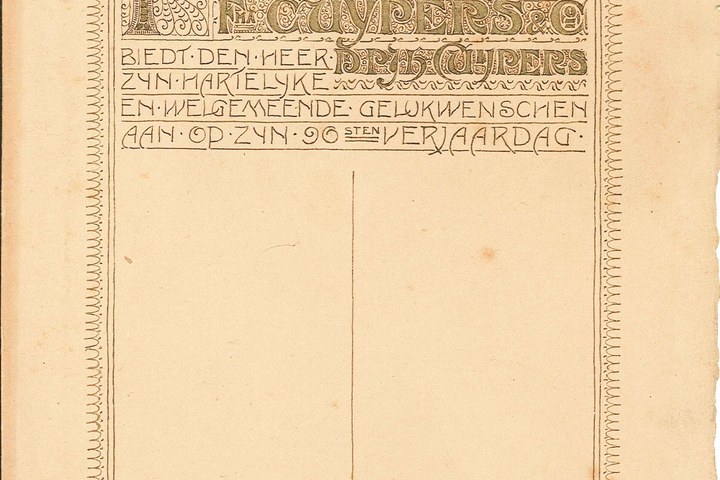 FMA CUYPERS & CO
BIEDT·DEN·HEER·DR. P.J.H. CUYPERS
ZYN·HARTELYKE
EN·WELGEMEENDE·GELUKWENSCHEN
AAN·OP·ZYN·90STEN VERJAARDAG·